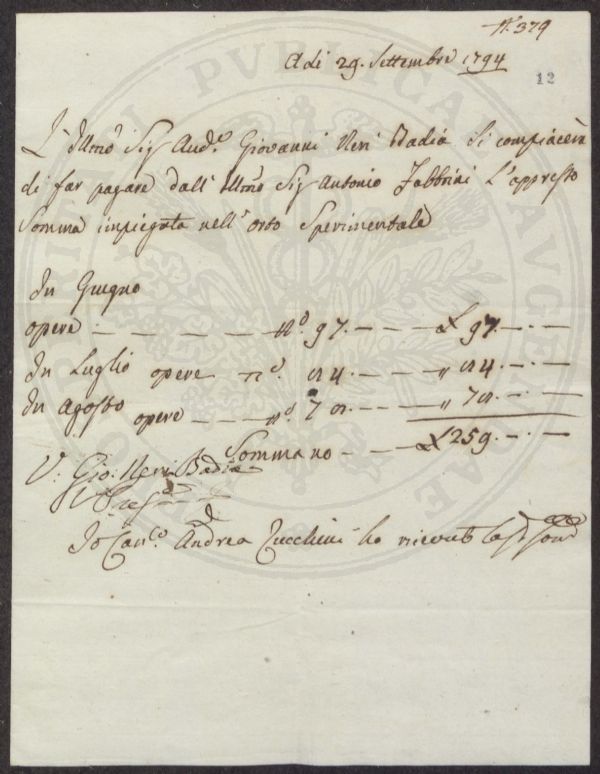 N.° 379
Adi 29. Settembre 1794
12
L'Illmo Sig Aud.e Giovanni Neri Badia Si compiacerà
di far pagare dall'Illmo Sig Antonio Fabbrini L'appresso
Somma impiegata nell'orto Sperimentale
In Giugno
opere — — — — — n.° 97. — — — £ 97. — . —
In Luglio opere n.° 84. — — — " 84. — . —
In Agosto opere — — — n.° 78. — — — " 78. — . —
Sommano — — — £ 259. — . —
V. Gio: Neri Badia
Io Can.co Andrea Zucchini ho ricevuto
PROSPERITATI PVBLICAE AVGENDAE